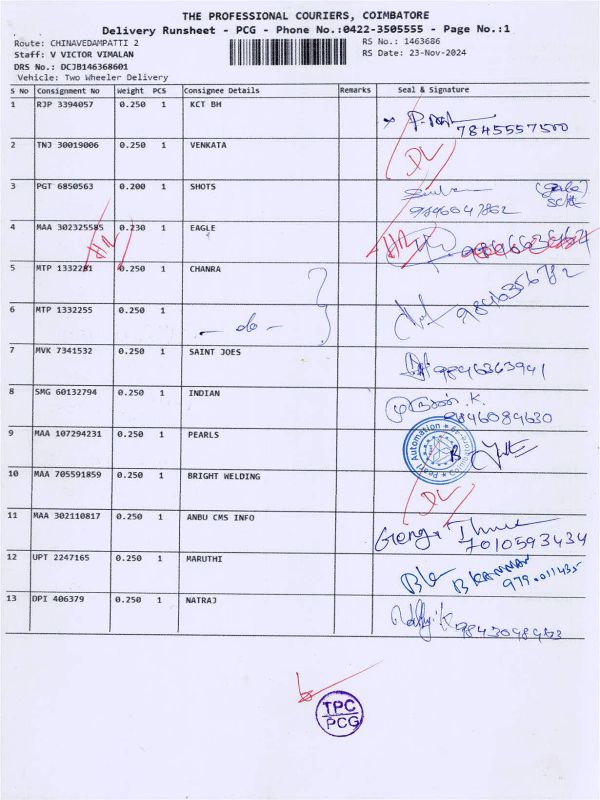 THE PROFESSIONAL COURIERS, COIMBATORE
Delivery Runsheet - PCG - Phone No.:0422-3505555 - Page No.:1
Route: CHINAVEDAMPATTI 2
RS No.: 1463686
Staff: V VICTOR VIMALAN
RS Date: 23-Nov-2024
DRS No.: DCJB146368601
Vehicle: Two Wheeler Delivery
S No Consignment No Weight PCS Consignee Details Remarks Seal & Signature
1 RJP 3394057 0.250 1 KCT BH
7845557500
2 TNJ 30019006 0.250 1 VENKATA
DL
3 PGT 6850563 0.200 1 SHOTS
9846047862
4 MAA 302325585 0.230 1 EAGLE
5 MTP 1332281 0.250 1 CHANRA
9846356782
6 MTP 1332255 0.250 1
- do -
7 MVK 7341532 0.250 1 SAINT JOES
9846363941
8 SMG 60132794 0.250 1 INDIAN
முருகன் .K
9846084630
9 MAA 107294231 0.250 1 PEARLS
Pearl Automation
10 MAA 705591859 0.250 1 BRIGHT WELDING
DL
11 MAA 302110817 0.250 1 ANBU CMS INFO
7010593434
12 UPT 2247165 0.250 1 MARUTHI
B KANNAN
13 DPI 406379 0.250 1 NATRAJ
TPC
PCG